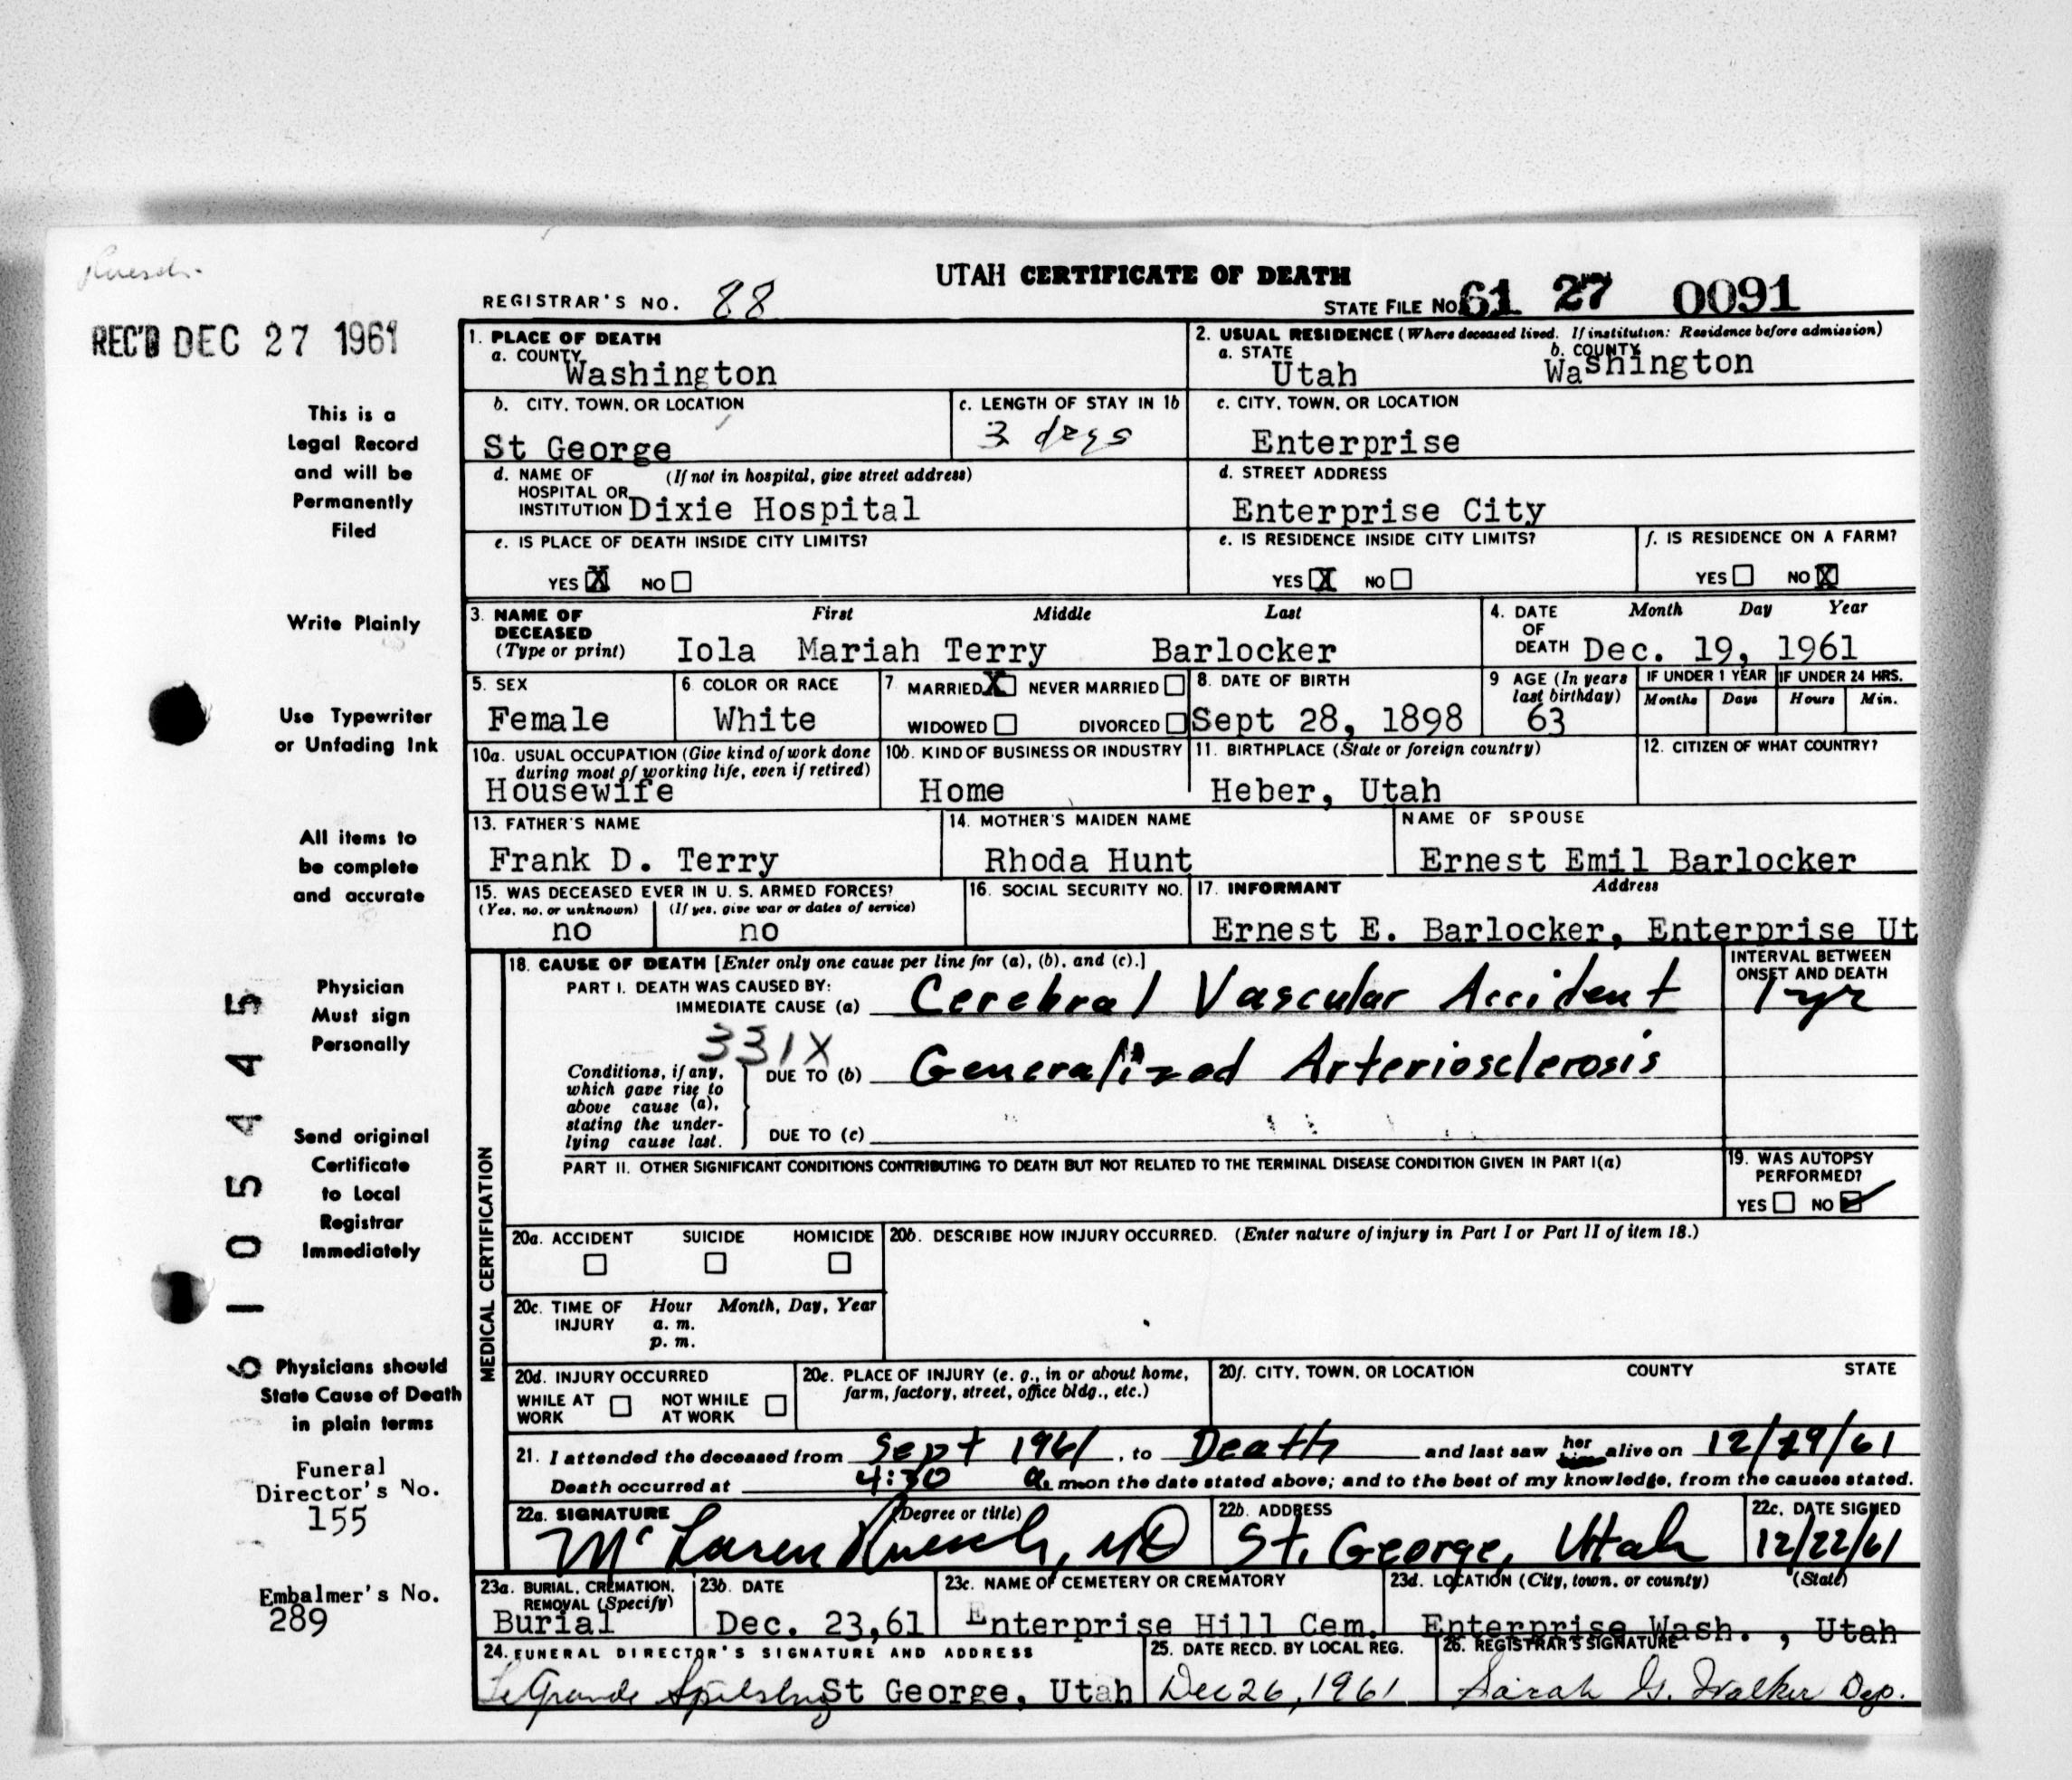 Ruesch
UTAH CERTIFICATE OF DEATH
REGISTRAR'S NO. 88
STATE FILE NO. 61 27 0091
REC'D DEC 27 1961
This is a
Legal Record
and will be
Permanently
Filed
Write Plainly
Use Typewriter
or Unfading Ink
All items to
be complete
and accurate
Physician
Must sign
Personally
Send original
Certificate
to Local
Registrar
Immediately
Physicians should
State Cause of Death
in plain terms
Funeral
Director's No.
155
Embalmer's No.
289
6105445
1. PLACE OF DEATH
a. COUNTY
Washington
2. USUAL RESIDENCE (Where deceased lived. If institution: Residence before admission)
a. STATE b. COUNTY
Utah Washington
b. CITY, TOWN, OR LOCATION
St George
c. LENGTH OF STAY IN 1b
3 days
c. CITY, TOWN, OR LOCATION
Enterprise
d. NAME OF (If not in hospital, give street address)
HOSPITAL OR
INSTITUTION Dixie Hospital
d. STREET ADDRESS
Enterprise City
e. IS PLACE OF DEATH INSIDE CITY LIMITS?
YES X NO
e. IS RESIDENCE INSIDE CITY LIMITS?
YES X NO
f. IS RESIDENCE ON A FARM?
YES NO X
3. NAME OF First Middle Last
DECEASED
(Type or print) Iola Mariah Terry Barlocker
4. DATE Month Day Year
OF
DEATH Dec. 19, 1961
5. SEX
Female
6. COLOR OR RACE
White
7. MARRIED X NEVER MARRIED
WIDOWED DIVORCED
8. DATE OF BIRTH
Sept 28, 1898
9 AGE (In years
last birthday)
63
IF UNDER 1 YEAR
Months Days
IF UNDER 24 HRS.
Hours Min.
10a. USUAL OCCUPATION (Give kind of work done
during most of working life, even if retired)
Housewife
10b. KIND OF BUSINESS OR INDUSTRY
Home
11. BIRTHPLACE (State or foreign country)
Heber, Utah
12. CITIZEN OF WHAT COUNTRY?
13. FATHER'S NAME
Frank D. Terry
14. MOTHER'S MAIDEN NAME
Rhoda Hunt
NAME OF SPOUSE
Ernest Emil Barlocker
15. WAS DECEASED EVER IN U. S. ARMED FORCES?
(Yes, no, or unknown) (If yes, give war or dates of service)
no no
16. SOCIAL SECURITY NO.
17. INFORMANT Address
Ernest E. Barlocker, Enterprise Ut
MEDICAL CERTIFICATION
18. CAUSE OF DEATH [Enter only one cause per line for (a), (b), and (c).]
PART I. DEATH WAS CAUSED BY:
IMMEDIATE CAUSE (a) Cerebral Vascular Accident
INTERVAL BETWEEN
ONSET AND DEATH
1 yr
331X
Conditions, if any,
which gave rise to
above cause (a),
stating the under-
lying cause last.
DUE TO (b) Generalized Arteriosclerosis
DUE TO (c)
PART II. OTHER SIGNIFICANT CONDITIONS CONTRIBUTING TO DEATH BUT NOT RELATED TO THE TERMINAL DISEASE CONDITION GIVEN IN PART I(a)
19. WAS AUTOPSY
PERFORMED?
YES NO
20a. ACCIDENT SUICIDE HOMICIDE
20b. DESCRIBE HOW INJURY OCCURRED. (Enter nature of injury in Part I or Part II of item 18.)
20c. TIME OF Hour Month, Day, Year
INJURY a. m.
p. m.
20d. INJURY OCCURRED
WHILE AT NOT WHILE
WORK AT WORK
20e. PLACE OF INJURY (e. g., in or about home,
farm, factory, street, office bldg., etc.)
20f. CITY, TOWN, OR LOCATION COUNTY STATE
21. I attended the deceased from Sept 1961, to Death and last saw her him alive on 12/19/61
Death occurred at 4:30 a. m on the date stated above; and to the best of my knowledge, from the causes stated.
22a. SIGNATURE (Degree or title)
McLaren Ruesch, MD
22b. ADDRESS
St. George, Utah
22c. DATE SIGNED
12/22/61
23a. BURIAL, CREMATION,
REMOVAL (Specify)
Burial
23b. DATE
Dec. 23,61
23c. NAME OF CEMETERY OR CREMATORY
Enterprise Hill Cem.
23d. LOCATION (City, town, or county) (State)
Enterprise Wash. , Utah
24. FUNERAL DIRECTOR'S SIGNATURE AND ADDRESS
LeGrande Spilsbury St George, Utah
25. DATE RECD. BY LOCAL REG.
Dec 26, 1961
26. REGISTRAR'S SIGNATURE
Sarah G. Walker Dep.